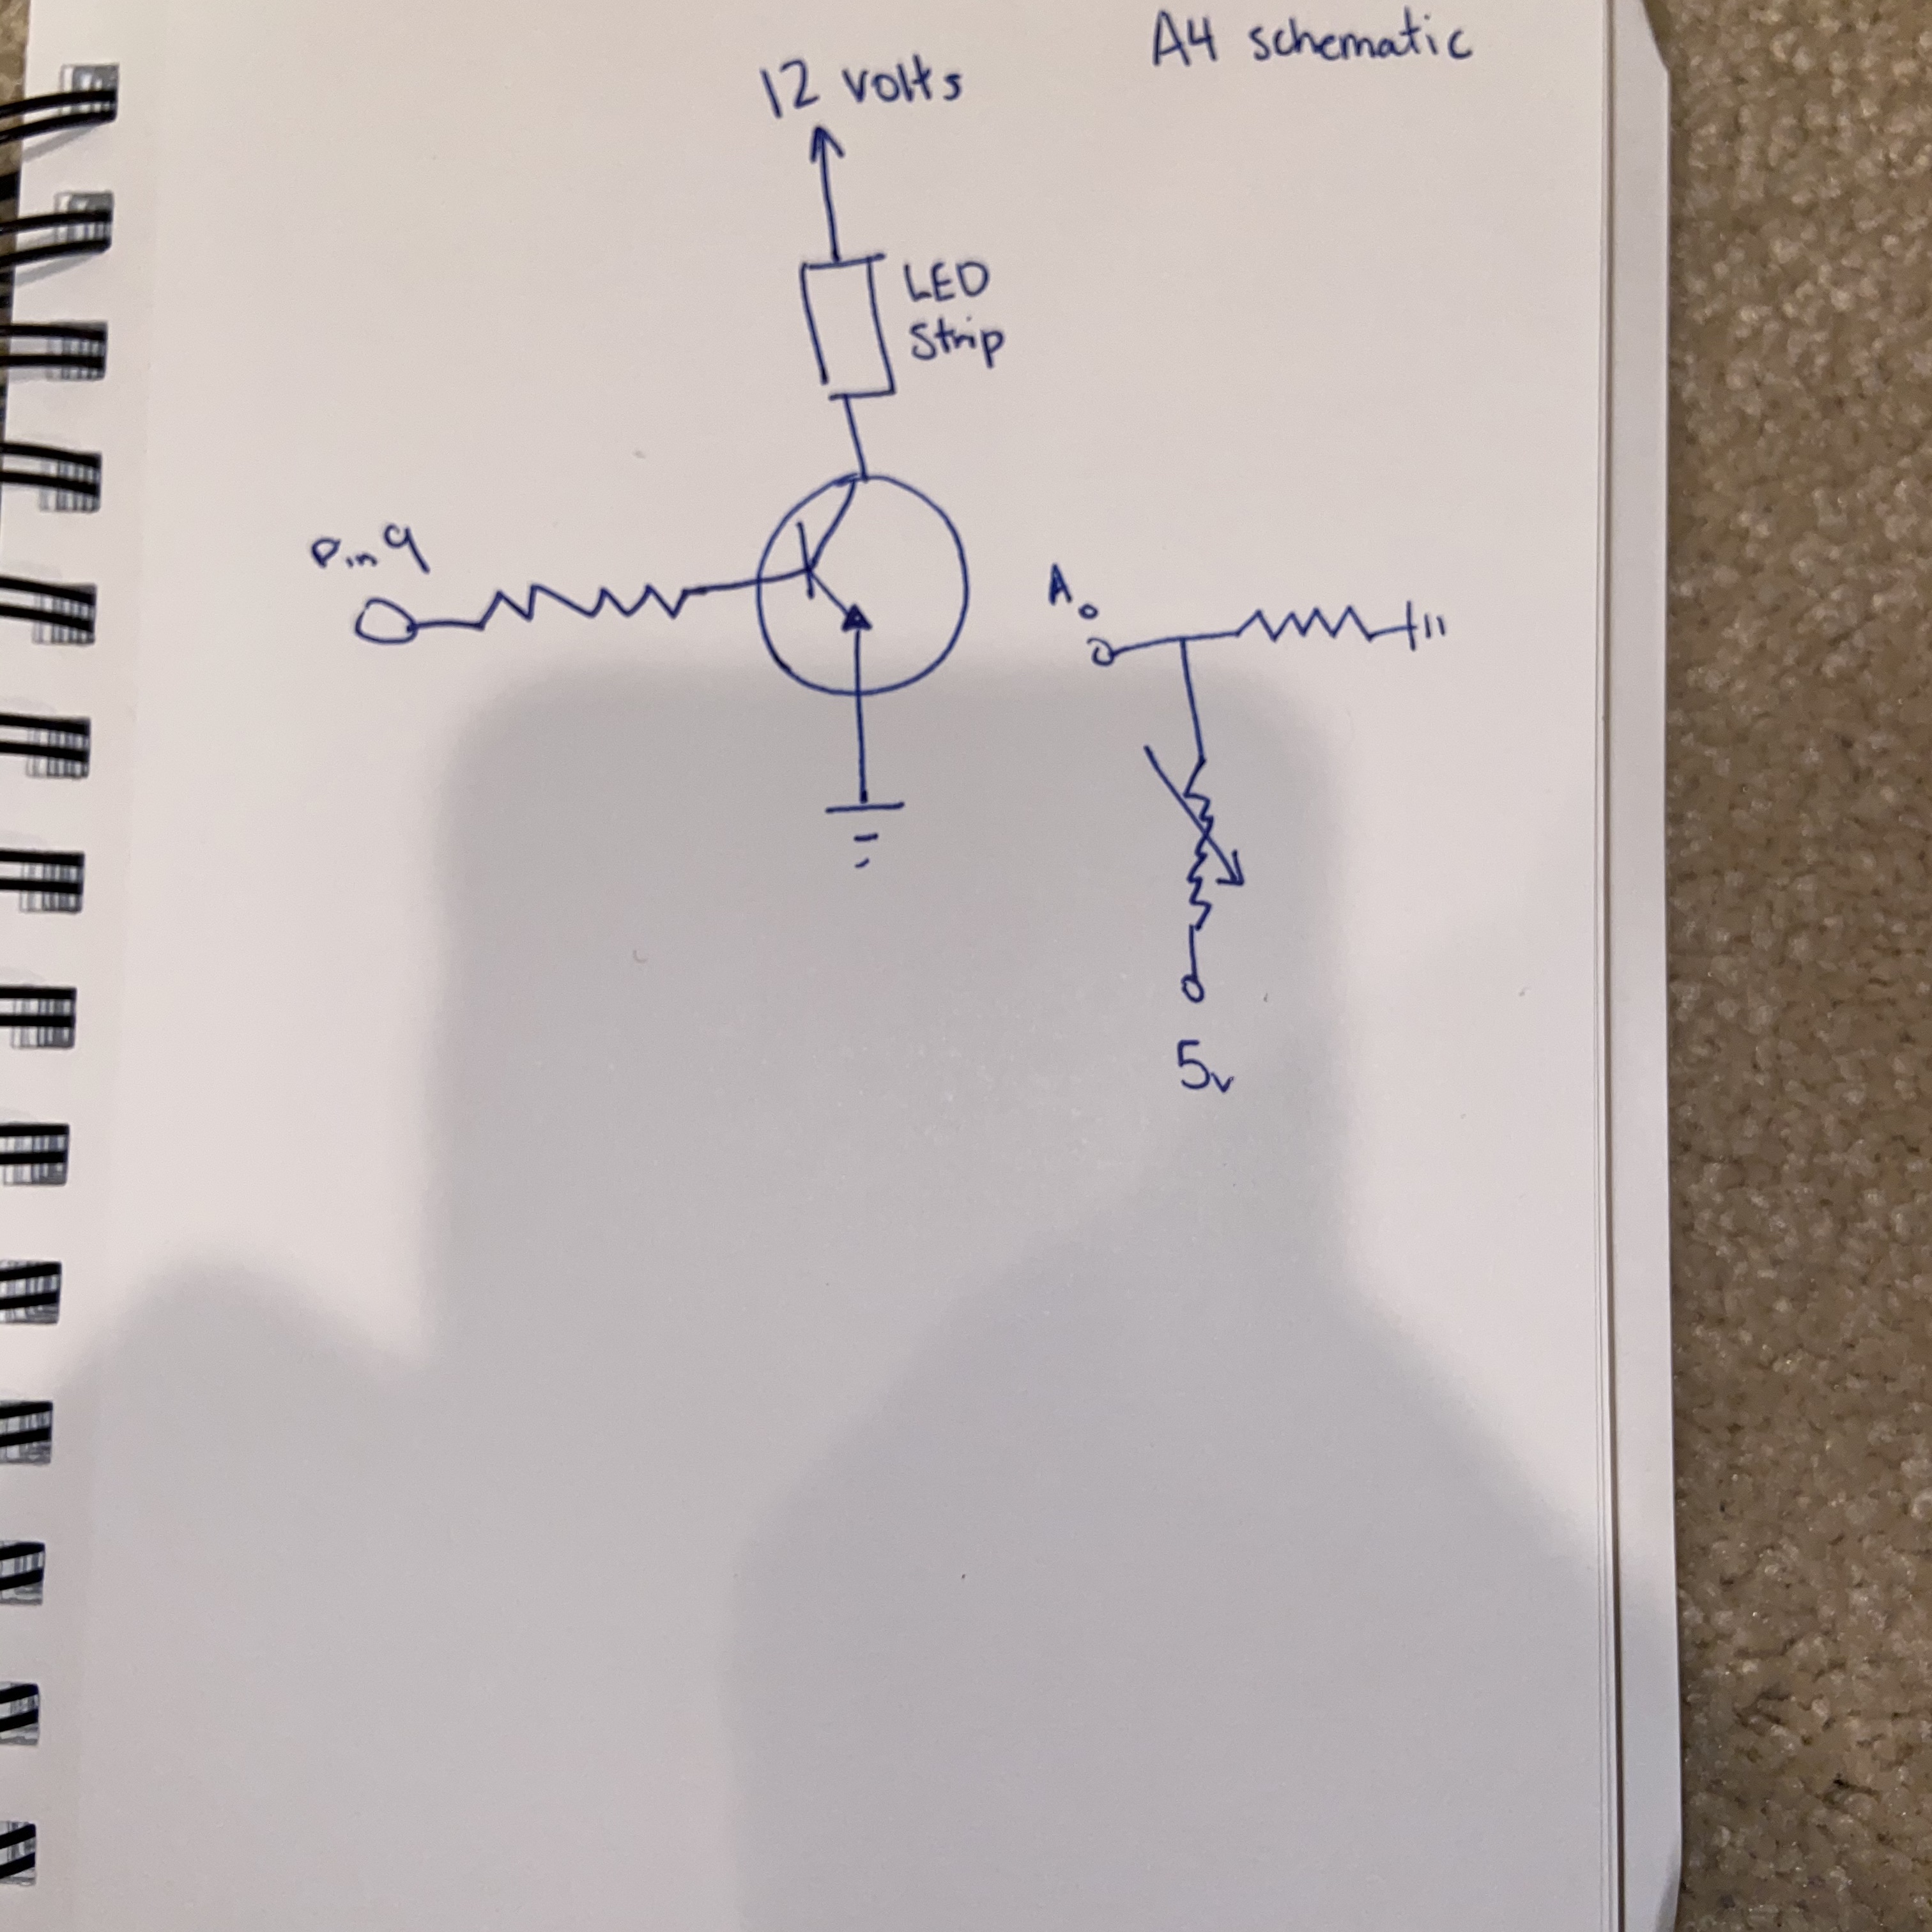 A4 schematic
12 volts
LED
Strip
Pin 9
A0
5v